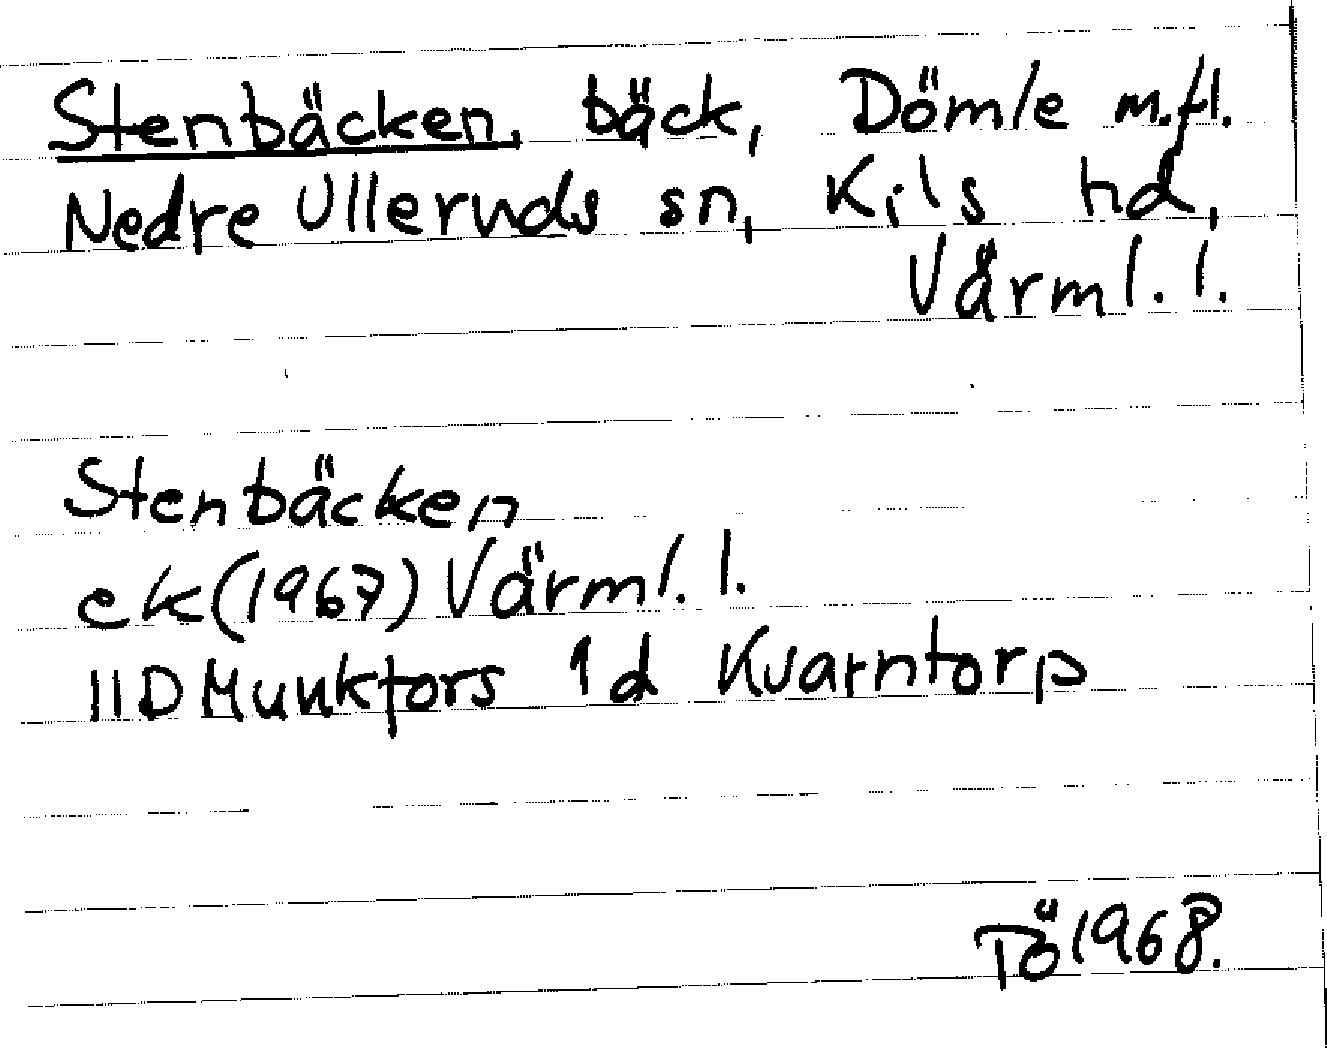 Stenbäcken, bäck, Dömle m.fl.
Nedre Ulleruds sn, Kils hd,
Värml. l.
Stenbäcken
ek(1967) Värml. l.
11D Munkfors 1d Kvarntorp
TÖ 1968.